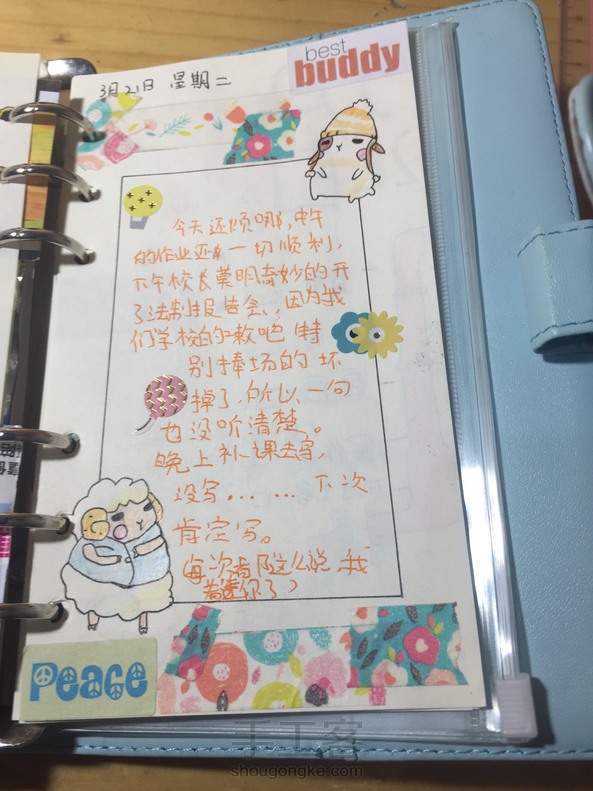 3月21日 星期二
best
buddy
今天还烦哪,中午
的作业还有一切顺利,
下午校长莫明奇妙的开
了法制报告会,因为我
们学校的喇叭 特
别捧场的 坏
掉了,所以,一句
也没听清楚。
晚上补课去写,
没写... ... 下次
肯定写。
每次都这么说,我
Peace
手工客
shougongke.com